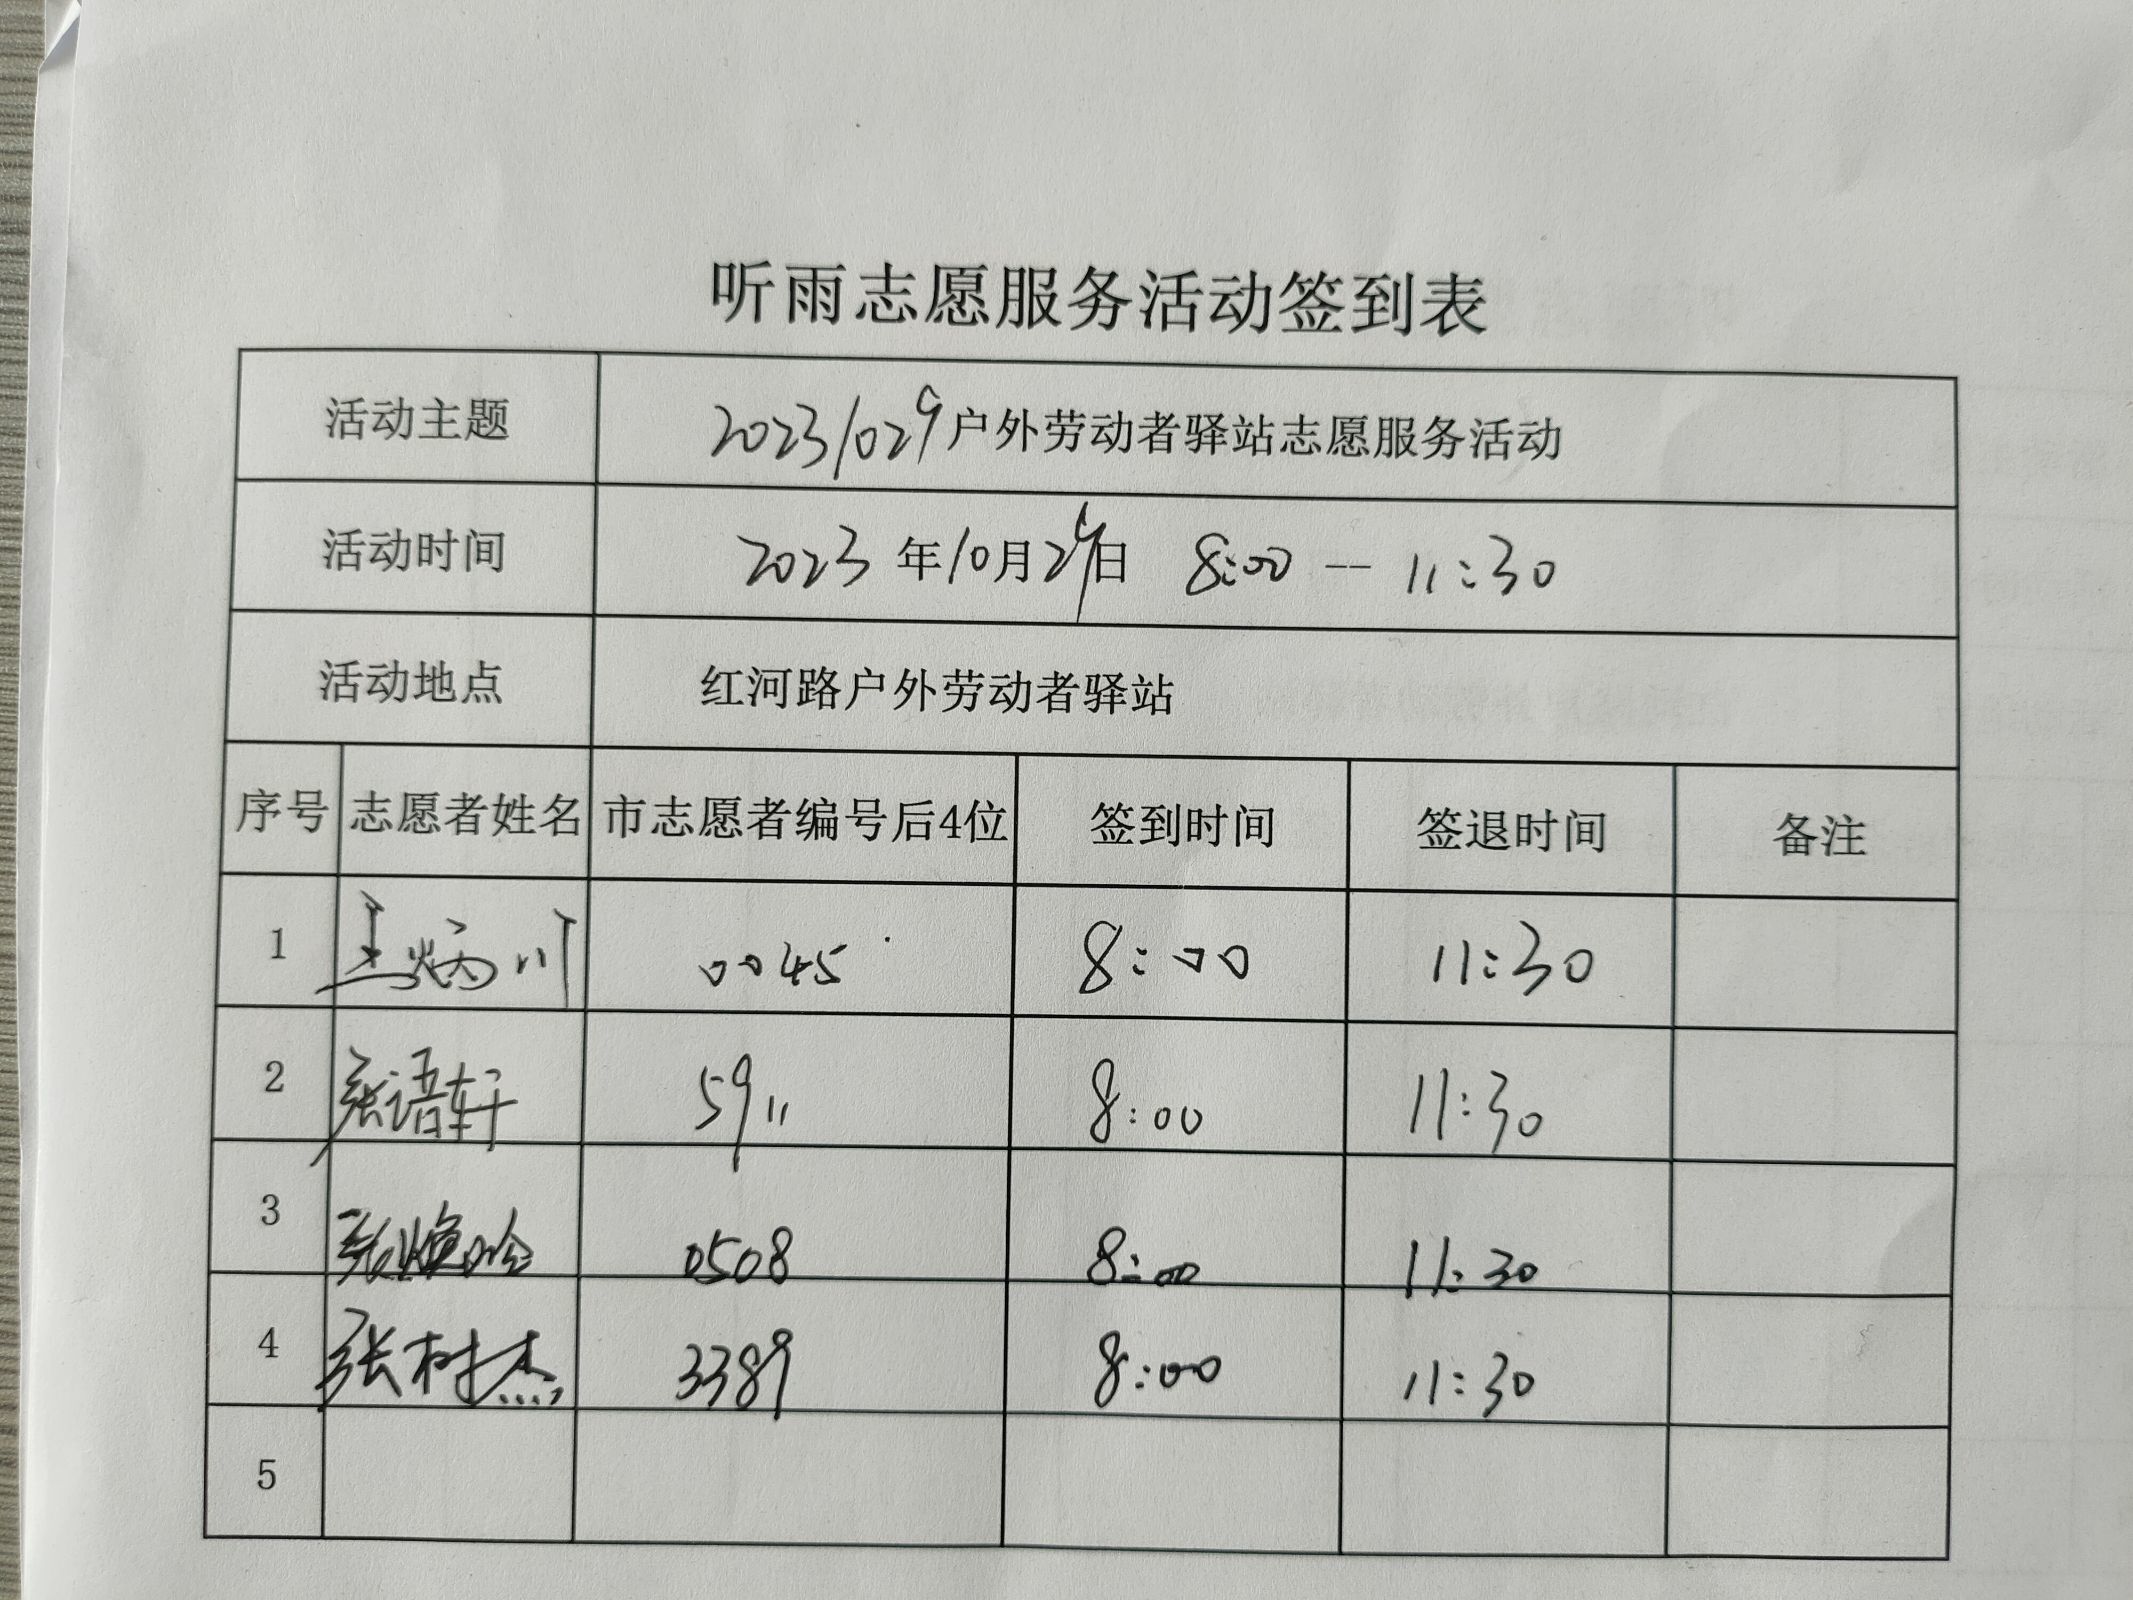 听雨志愿服务活动签到表
活动主题 20231029户外劳动者驿站志愿服务活动
活动时间 2023年10月29日 8:00 -- 11:30
活动地点 红河路户外劳动者驿站
序号 志愿者姓名 市志愿者编号后4位 签到时间 签退时间 备注
1 王炳川 0045 8:00 11:30
2 张语轩 5911 8:00 11:30
3 张 0508 8:00 11:30
4 张树杰 3389 8:00 11:30
5